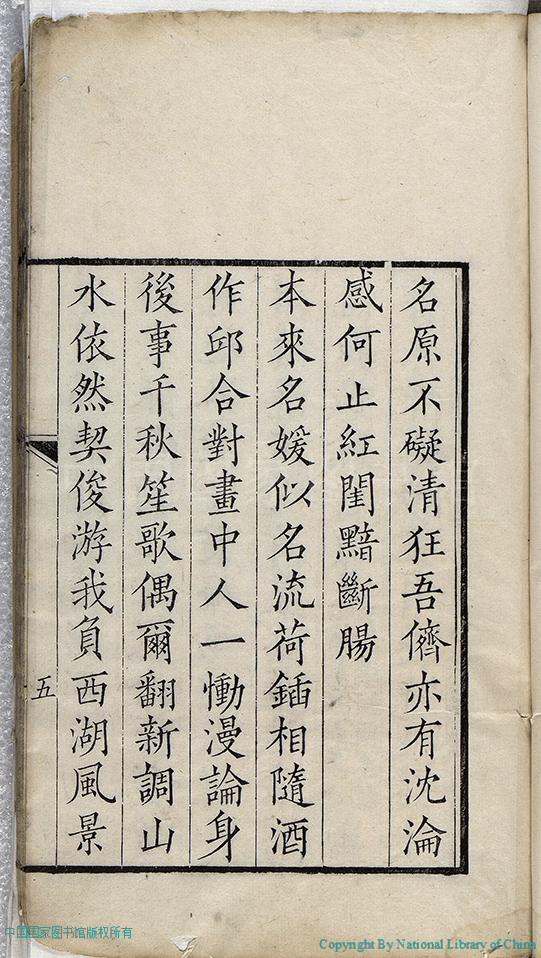 名原不礙清狂吾儕亦有沈淪
感何止紅閨黯斷腸
本來名媛似名流荷鍤相隨酒
作邱合對畫中人一慟漫論身
後事千秋笙歌偶爾翻新調山
水依然契俊游我負西湖風景
五
中国国家图书馆版权所有
Copyright By National Library of China